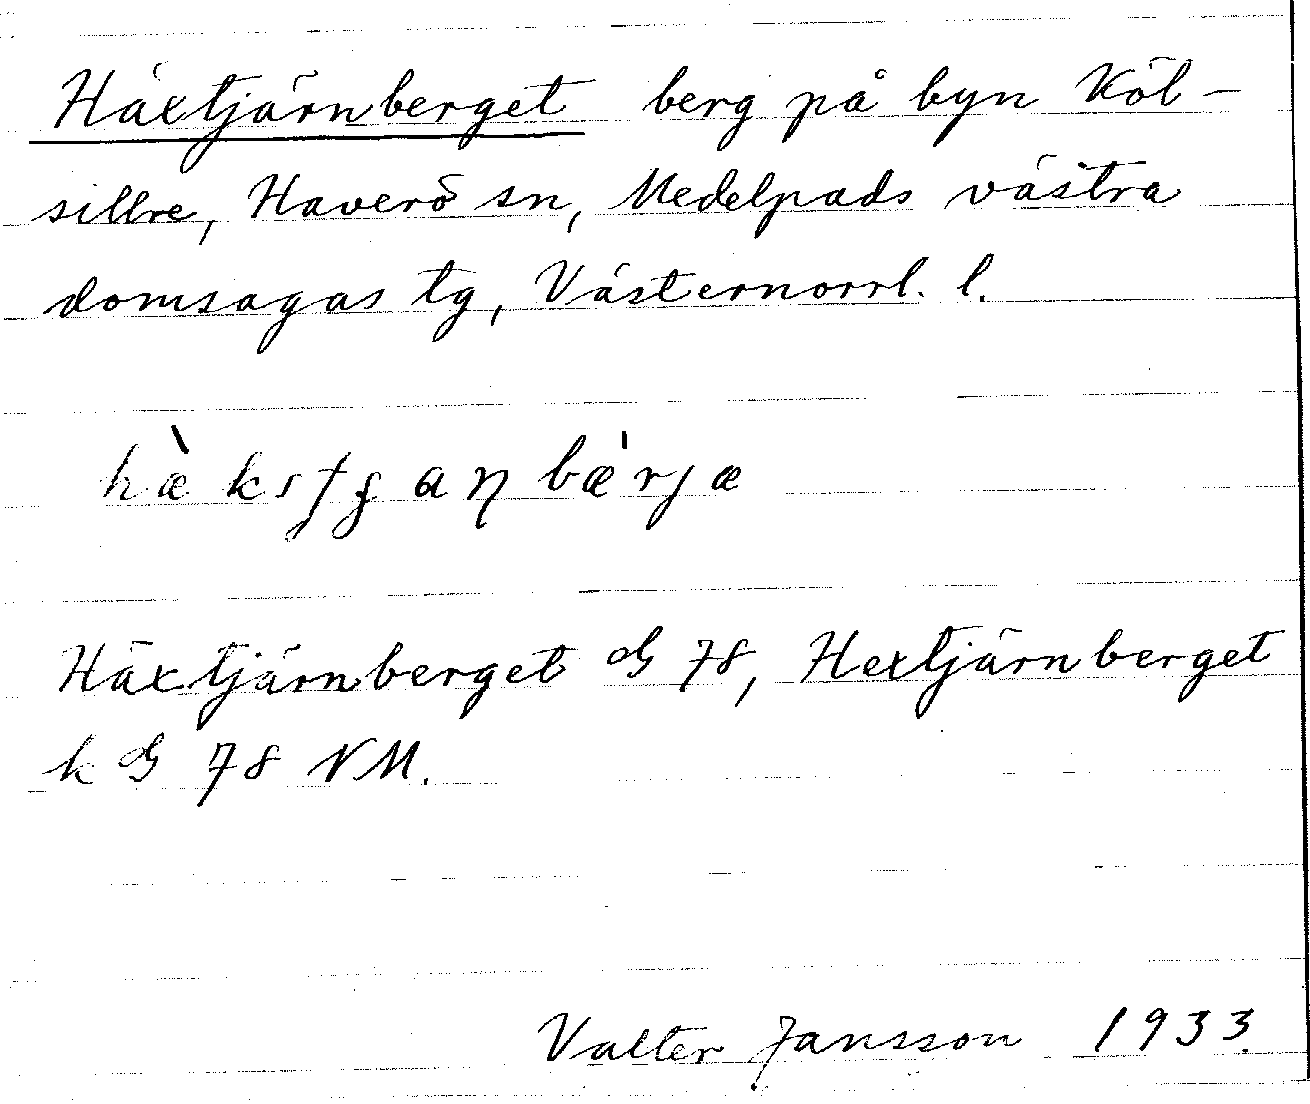 Häxtjärnberget berg på byn Köl-
sillre, Haverö sn, Medelpads västra
domsagas tg, Västernorrl. l.
Häxtjärnberget G 78, Hextjärnberget
k G 78 NM.
Valter Jansson 1933.